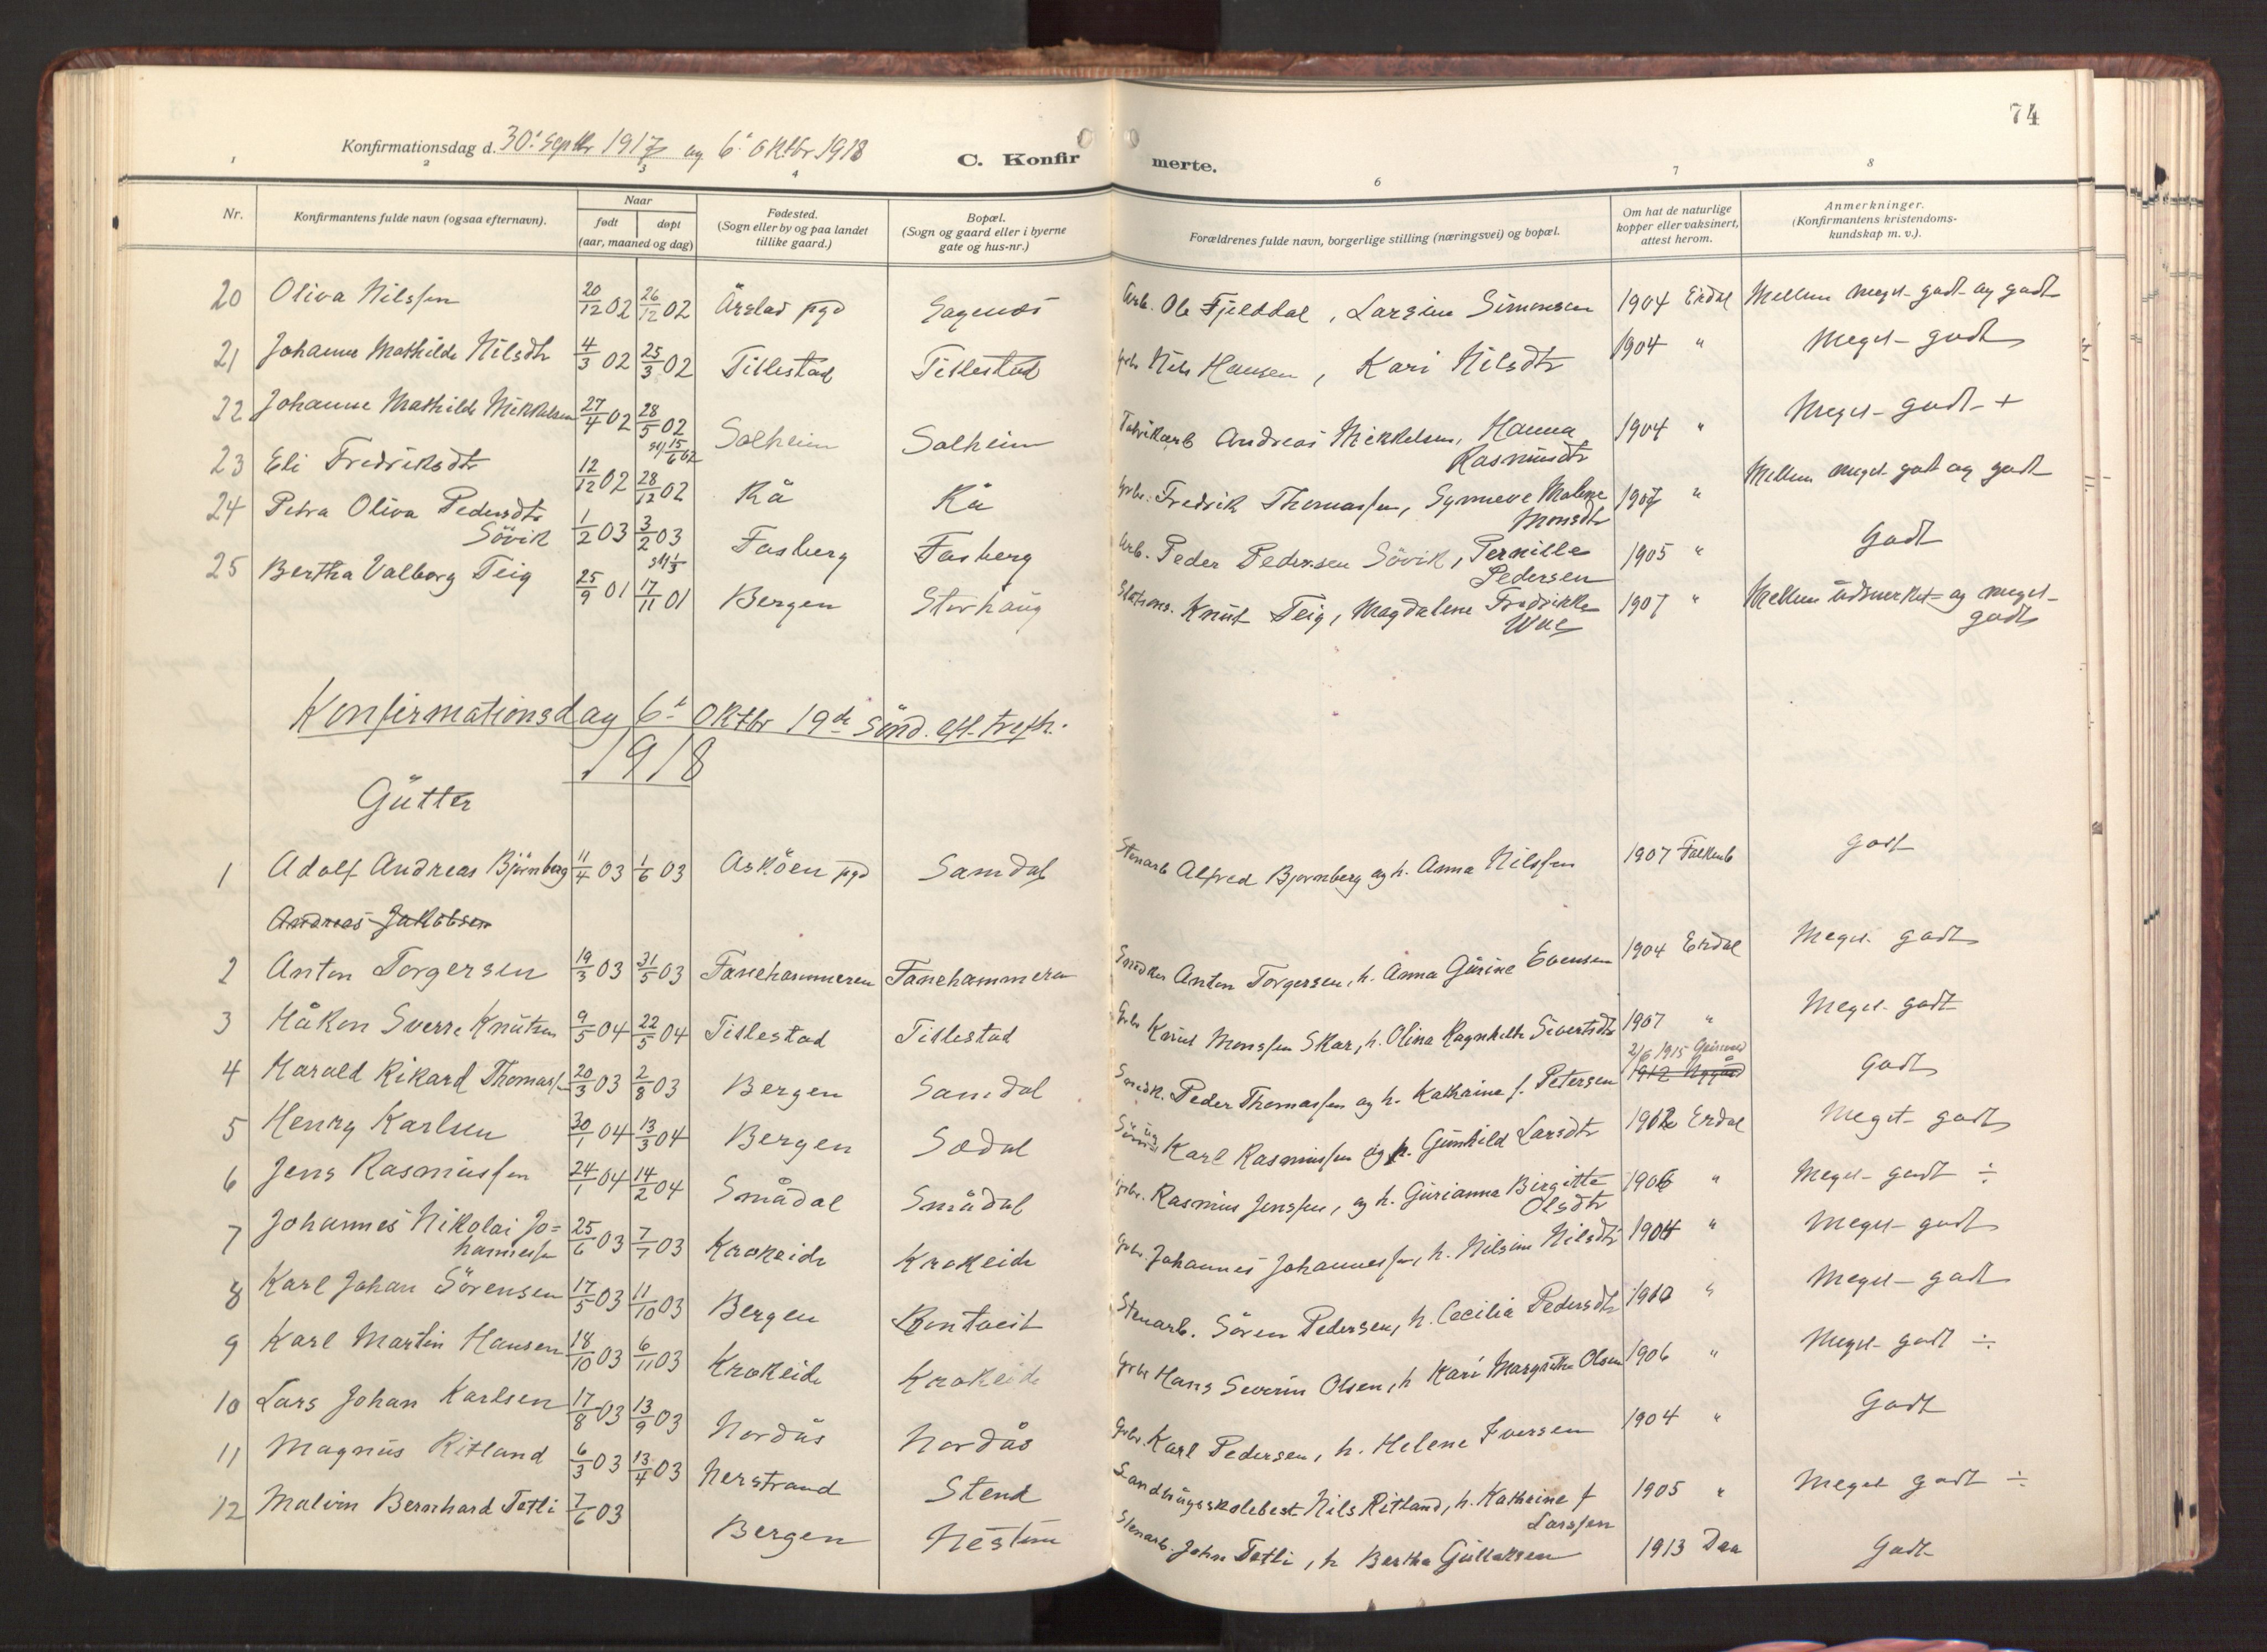 74
Konfirmationsdag d. 30' Septbr 1917 og 6' Oktbr 1918
C. Konfirmerte.
1 2 3 4 6 7 8
Nr. Konfirmantens fulde navn (ogsaa efternavn). Naar født døpt (aar, maaned og dag) Fødested. (Sogn eller by og paa landet tillike gaard.) Bopæl. (Sogn og gaard eller i byerne gate og hus-nr.) Forældrenes fulde navn, borgerlige stilling (næringsvei) og bopæl. Om hat de naturlige kopper eller vaksinert, attest herom. Anmerkninger. (Konfirmantens kristendoms-kundskap m. v.).
20 Oliva Nilssen 20/12 02 26/12 02 Årstad pgd Arb. Ole Fjelddal, Larsine Simonsen 1904 Erdal Mellem meget godt og godt
21 Johanne Mathilde Nilsdtr 4/3 02 25/3 02 Titlestad Titlestad Grbr Nils Hansen, Kari Nilsdtr 1904 " Meget godt
22 Johanne Mathilde Mikkelsen 27/4 02 28/5 02 15/6 02 Solheim Solheim Fabrikarb Andreas Mikkelsen, Hanna Rasmusdtr 1904 " Meget godt +
23 Eli Fredriksdtr 12/12 02 28/12 02 Rå Rå Grbr. Fredrik Thomassen, Synneve Malene Monsdtr 1907 " Mellem meget godt og godt
24 Petra Oliva Pedersdtr Sövik 1/2 03 3/2 03 Fasberg Fasberg Arb. Peder Pedersen Sövik, Pernille Pedersen 1905 " Godt
25 Bertha Valborg Teig 25/9 01 17/11 01 Bergen Storhaug Stations. Knut Teig, Magdalene Fredrikke 1907 " Mellem udmerket og meget godt
Konfirmationsdag 6' Oktbr 19de Sönd. eft. trefh.
1918
Gutter
1 Adolf Andreas Björnberg 11/4 03 1/6 03 Asköen pgd Samdal Stenarb Alfred Bjornberg og h. Anna Nilssen 1907 Godt
Andreas Jakobsen
2 Anton Torgersen 19/3 03 31/5 03 Fanehammeren Fanehammeren Snedker Anton Torgersen, h. Anna Gurine Evensen 1904 Erdal Meget godt
3 Håkon Sverre Knutsen 9/5 04 22/5 04 Titlestad Titlestad Grbr Knut Monssen Skar, h. Olina Ragnhilde Sivertsdtr 1907 " Meget godt
4 Harald Rikard Thomassen 20/3 03 2/8 03 Bergen Samdal Snedk. Peder Thomassen og h. Kathrine f. Petersen 2/6 1915 1912 Nygård Godt
5 Henry Karlsen 30/1 04 13/3 04 Bergen Sædal Karl Rasmussen og h. Gunhild Larsdtr Erdal Meget godt
6 Jens Rasmussen 24/1 04 14/2 04 Smådal Smådal Grbr. Rasmus Jenssen, og h. Gurianna Birgitte Olsdtr 1906 " Meget godt ÷
7 Johannes Nikolai Johannessen 25/6 03 7/7 03 Krokeide Krokeide Grbr. Johannes Johannessen, h. Nilsine Nilsdtr 1904 " Meget godt
8 Karl Johan Sörensen 17/5 03 11/10 03 Bergen Rontveit Stenarb. Sören Pedersen, h. Cecilia Pedersdtr 1910 " Meget godt
9 Karl Martin Hansen 18/10 03 6/11 03 Krokeide Krokeide Grbr Hans Severin Olsen, h Kari Margrethe Olsen 1906 " Meget godt ÷
10 Lars Johan Karlsen 17/8 03 13/9 03 Nordås Nordås Grbr. Karl Pedersen, h. Helene Iversen 1904 " Godt
11 Magnus Ritland 6/3 03 13/4 03 Nerstrand Stend Landbrugsskolebest Nils Ritland, h. Kathrine f Larssen 1905 " Meget godt ÷
12 Malvin Bernhard Tetli 7/6 03 Bergen Nesttun Stenarb. John Tetli, h Bertha Gullaksen 1913 Daa Godt